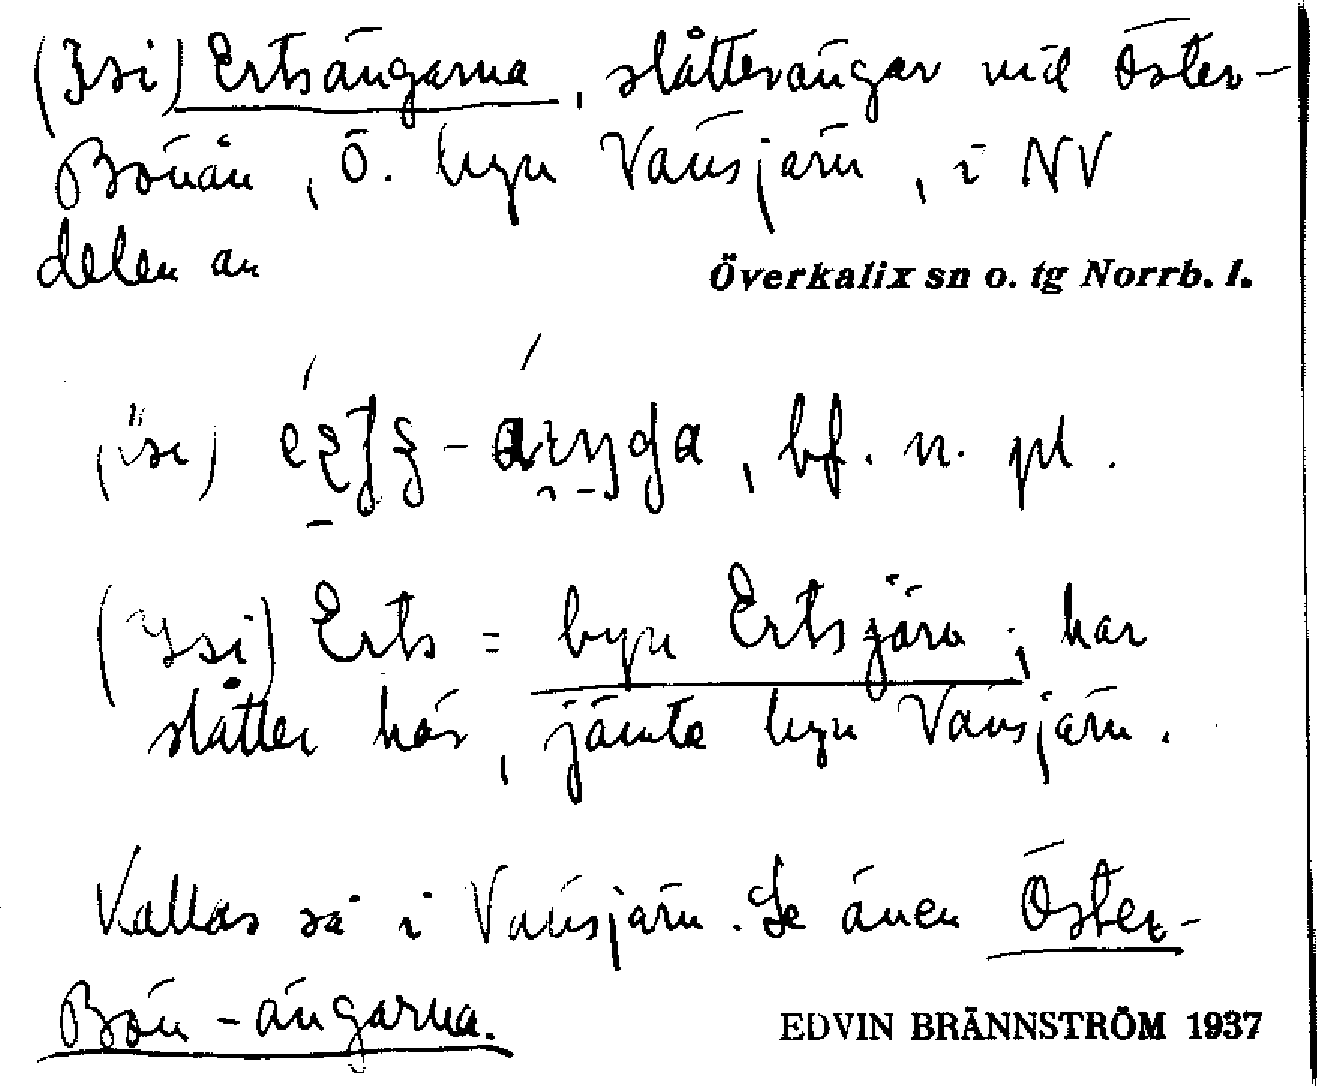 (Ysi) Ertsängarna, slåtterängar vid Öster-
Bönån, Ö. byn Vänsjärn, i NV
delen av
Överkalix sn o. tg Norrb. l.
bf. n. pl.
(Ysi) Erts = byn Ertsjärv; har
slåtter här, jämte byn Vänsjärn.
Kallas så i Vänsjärn. Se även Öster-
Bön-ängarna.
EDVIN BRÄNNSTRÖM 1937